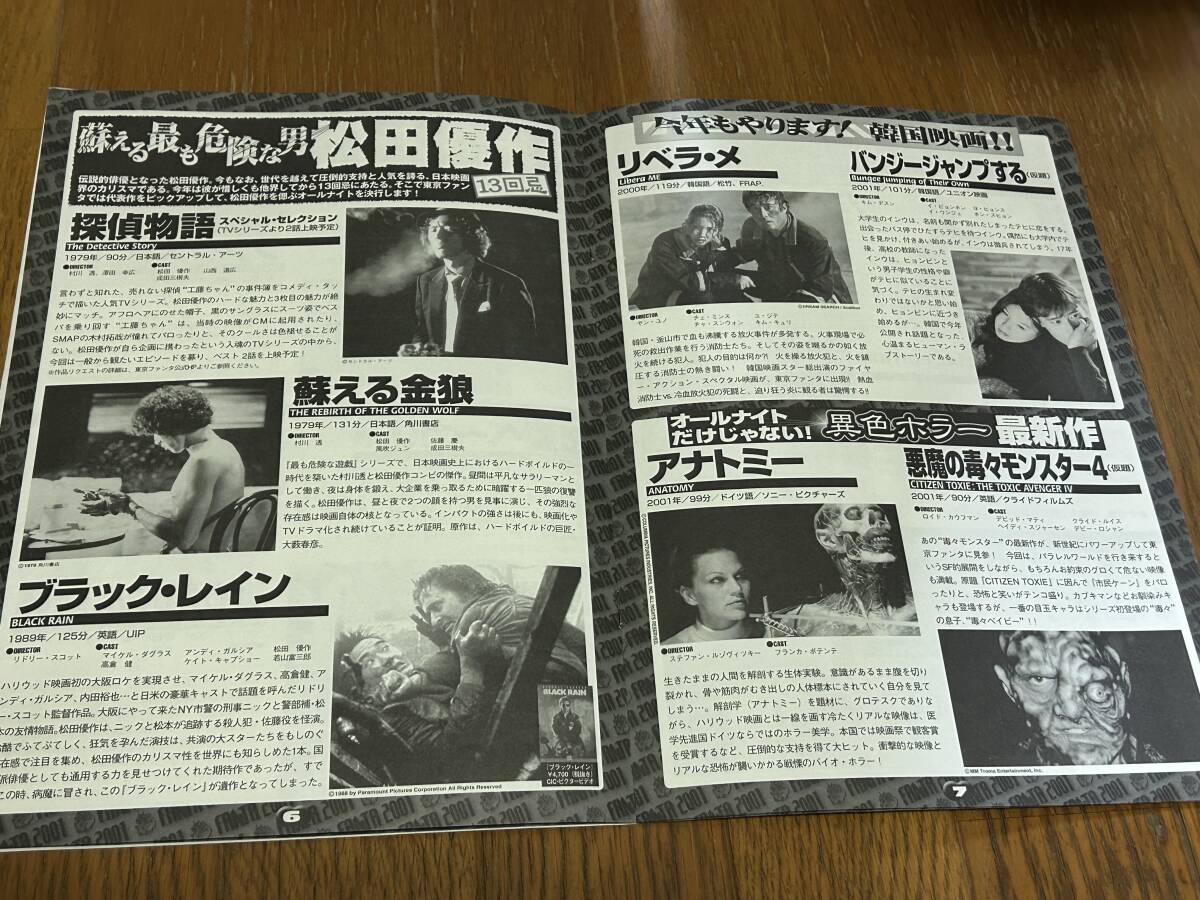 FANTA 2001
蘇える最も危険な男 松田優作
13回忌
伝説的俳優となった松田優作。今もなお、世代を越えて圧倒的支持と人気を誇る、日本映画
界のカリスマである。今年は彼が惜しくも他界してから13回忌にあたる。そこで東京ファン
タでは代表作をピックアップして、松田優作を偲ぶオールナイトを決行します！
探偵物語 スペシャル・セレクション
(TVシリーズより2話上映予定)
The Detective Story
1979年／90分／日本語／セントラル・アーツ
●DIRECTOR
村川 透、澤田 幸広
●CAST
松田 優作 山西 道広
成田三樹夫
言わずと知れた、売れない探偵“工藤ちゃん”の事件簿をコメディ・タッ
チで描いた人気TVシリーズ。松田優作のハードな魅力と3枚目の魅力が絶
妙にマッチ。アフロヘアにのせた帽子、黒のサングラスにスーツ姿でベス
パを乗り回す“工藤ちゃん”は、当時の映像がCMに起用されたり、
SMAPの木村拓哉が憧れてパロったりと、そのクールさは色褪せることが
ない。松田優作が自ら企画に携わったという入魂のTVシリーズの中から、
今回は一般から観たいエピソードを募り、ベスト2話を上映予定！
※作品リクエストの詳細は、東京ファンタ公式HPよりご参照ください。
©セントラル・アーツ
蘇える金狼
THE REBIRTH OF THE GOLDEN WOLF
1979年／131分／日本語／角川書店
●DIRECTOR
村川 透
●CAST
松田 優作 佐藤 慶
風吹ジュン 成田三樹夫
『最も危険な遊戯』シリーズで、日本映画史上におけるハードボイルドの一
時代を築いた村川透と松田優作コンビの傑作。昼間は平凡なサラリーマンと
して働き、夜は身体を鍛え、大企業を乗っ取るために暗躍する一匹狼の復讐
を描く。松田優作は、昼と夜で2つの顔を持つ男を見事に演じ、その強烈な
存在感は映画自体の核となっている。インパクトの強さは後にも、映画化や
TVドラマ化され続けていることが証明。原作は、ハードボイルドの巨匠・
大藪春彦。
©1979 角川書店
ブラック・レイン
BLACK RAIN
1989年／125分／英語／UIP
●DIRECTOR
リドリー・スコット
●CAST
マイケル・ダグラス アンディ・ガルシア 松田 優作
高倉 健 ケイト・キャプショー 若山富三郎
ハリウッド映画初の大阪ロケを実現させ、マイケル・ダグラス、高倉健、ア
ンディ・ガルシア、内田裕也…と日米の豪華キャストで話題を呼んだリドリ
ー・スコット監督作品。大阪にやって来たNY市警の刑事ニックと警部補・松
本の友情物語。松田優作は、ニックと松本が追跡する殺人犯・佐藤役を怪演。
酷でふてぶてしく、狂気を孕んだ演技は、共演の大スターたちをもしのぐ
在感で注目を集め、松田優作のカリスマ性を世界にも知らしめた1本。国
派俳優としても通用する力を見せつけてくれた期待作であったが、すで
この時、病魔に冒され、この『ブラック・レイン』が遺作となってしまった。
BLACK RAIN
『ブラック・レイン』
¥4,700（税抜き）
CIC・ビクタービデオ
©1989 by Paramount Pictures Corporation All Rights Reserved.
6
今年もやります！ 韓国映画!!
リベラ・メ
Libera ME
2000年／119分／韓国語／松竹、FRAP.
©DREAM SEARCH
●DIRECTOR
ヤン・ユノ
●CAST
チェ・ミンス ユ・ジテ
チャ・スンウォン キム・キュリ
韓国・釜山市で血も沸騰する放火事件が多発する。火事現場で必
死の救出作業を行う消防士たち。そしてその姿を嘲るかの如く放
火を続ける犯人。犯人の目的は何か?! 火を操る放火犯と、火を鎮
圧する消防士の熱き闘い！ 韓国映画スター総出演のファイヤ
ー・アクション・スペクタル映画が、東京ファンタに出現!! 熱血
消防士vs.冷血放火犯の死闘と、迫り狂う炎に観る者は驚愕する!!
バンジージャンプする(仮題)
Bungee Jumping of Their Own
2001年／101分／韓国語／ユニオン映画
●DIRECTOR
キム・デスン
●CAST
イ・ビョンホン ヨ・ヒョンス
イ・ウンジュ ホン・スヒョン
大学生のインウは、名前も聞かず別れたしまったテヒに恋をする。
出会ったバス停でひたすらテヒを待つインウ。偶然にも大学内でテ
ヒを見かけ、付きあい始めるが、インウは徴兵されてしまう。17年
後、高校の教師になった
インウは、ヒョンビンと
いう男子学生の性格や癖
がテヒに似ていることに
気づく。テヒの生まれ変
わりではないかと思い始
め、ヒョンビンに近づき
始めるが…。韓国で今年
公開され話題となった、
心温まるヒューマン・ラ
ブストーリーである。
オールナイト
だけじゃない！ 異色ホラー 最新作
アナトミー
ANATOMY
2001年／99分／ドイツ語／ソニー・ピクチャーズ
©COLUMBIA PICTURES INDUSTRIES, INC. ALL RIGHTS RESERVED.
●DIRECTOR
ステファン・ルゾヴィツキー
●CAST
フランカ・ポテンテ
生きたままの人間を解剖する生体実験。意識があるまま腹を切り
裂かれ、骨や筋肉がむき出しの人体標本にされていく自分を見て
しまう…。解剖学（アナトミー）を題材に、グロテスクでありな
がら、ハリウッド映画とは一線を画す冷たくリアルな映像は、医
学先進国ドイツならではのホラー美学。本国では映画祭で観客賞
を受賞するなど、圧倒的な支持を得て大ヒット。衝撃的な映像と
リアルな恐怖が襲いかかる戦慄のバイオ・ホラー！
悪魔の毒々モンスター4(仮題)
CITIZEN TOXIE : THE TOXIC AVENGER IV
2001年／90分／英語／クライドフィルムズ
●DIRECTOR
ロイド・カウフマン
●CAST
デビッド・マティ クライド・ルイス
ヘイディ・スジャーセン デビー・ロシャン
あの“毒々モンスター”の最新作が、新世紀にパワーアップして東
京ファンタに見参！ 今回は、パラレルワールドを行き来すると
いうSF的展開をしながら、もちろんお約束のグロくて危ない映像
も満載。原題『CITIZEN TOXIE』に因んで『市民ケーン』をパロ
ったりと、恐怖と笑いがテンコ盛り。カブキマンなどお馴染みキャ
ラも登場するが、一番の目玉キャラはシリーズ初登場の“毒々”
の息子、“毒々ベイビー”！！
©MM Troma Entertainment, Inc.
7